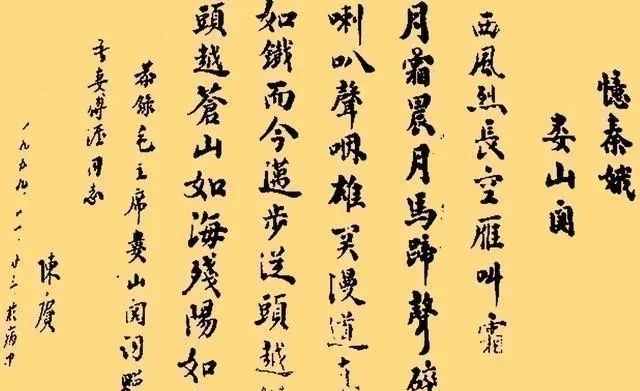 憶秦娥
娄山関
西風烈長空雁叫霜
月霜晨月馬蹄聲碎
喇叭聲咽雄関漫道真
如鐵而今邁步從頭越
頭越蒼山如海殘陽如
恭錄毛主席婁山関词贈
吾妻傅涯同志
陳賡
一九五九.十一.廿三於病中